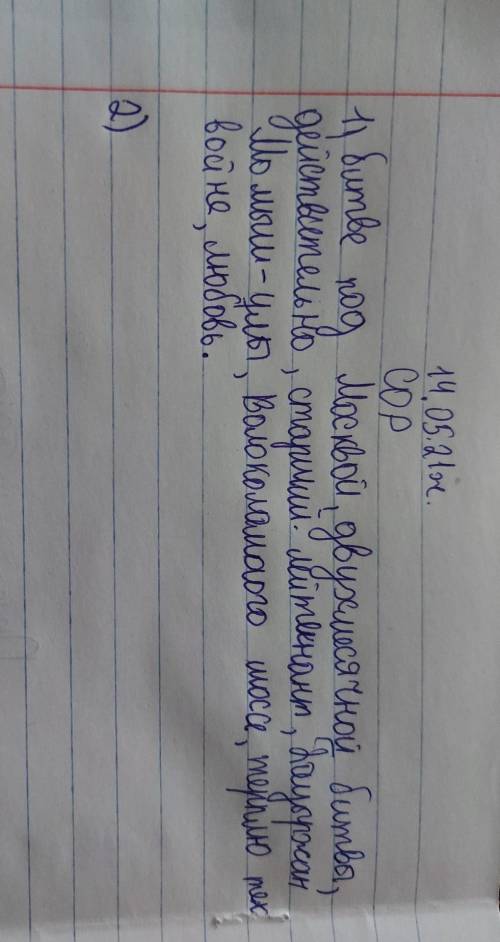 14.05.21ж.
СОР
1) битве под Москвой, двухмесячной битвы,
действетельно, старший лейтекнант, Бауыржан
Момыш-улы, Волоколамаого шоссе, терплю тех
войне, любовь.
2)